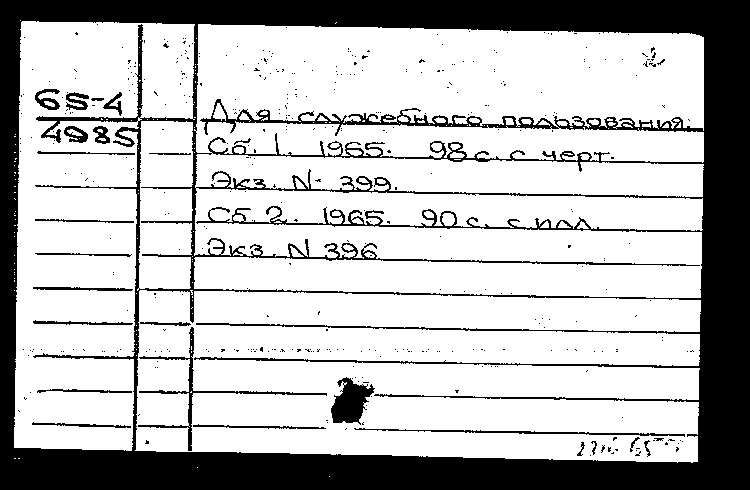 65-4
4985
Для служебного пользования.
Сб. 1. 1965. 98 с. с черт.
Экз. N- 399.
Сб. 2. 1965. 90 с. с илл.
Экз. N 396